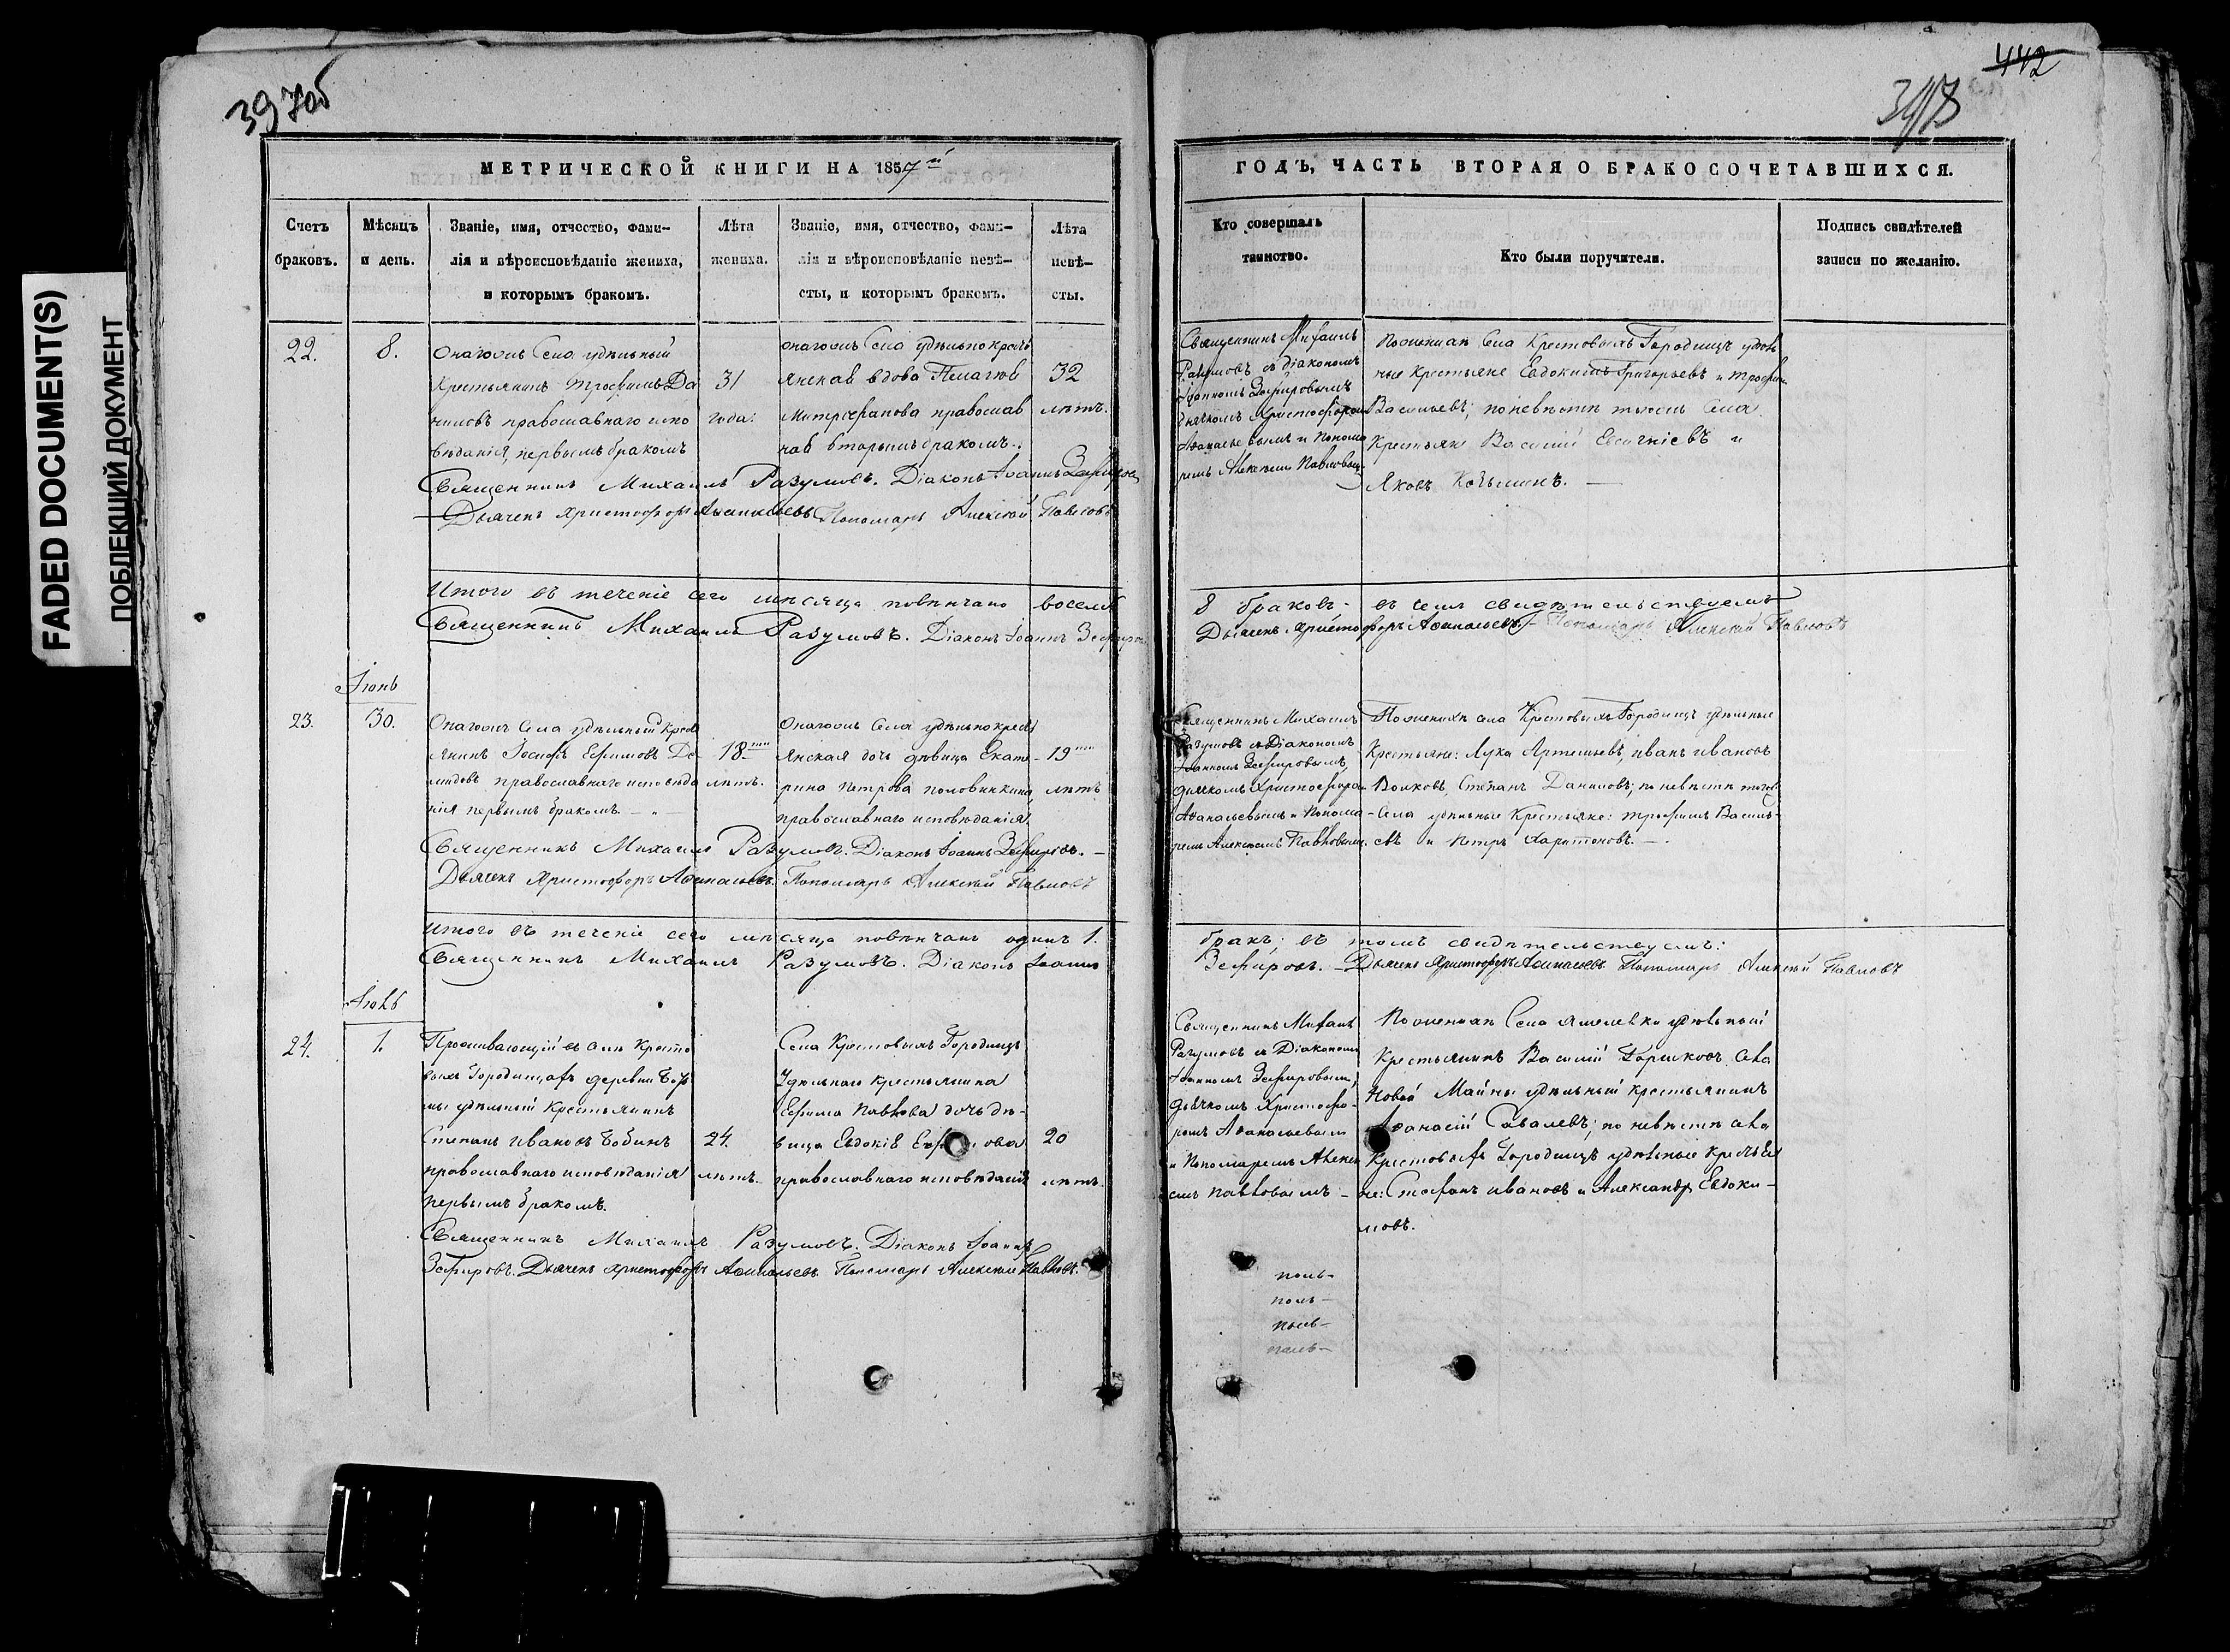 397об
442
FADED DOCUMENT(S)
ПОБЛЕКШИЙ ДОКУМЕНТ
МЕТРИЧЕСКОЙ КНИГИ НА 1857й
Счетъ браковъ.
Мѣсяцъ и день.
Званіе, имя, отчество, фами-
лія и вѣроисповѣданіе жениха,
и которымъ бракомъ.
Лѣта
жениха.
Званіе, имя, отчество, фами-
лія и вѣроисповѣданіе невѣ-
сты, и которымъ бракомъ.
Лѣта
невѣ-
сты.
22.
8.
Онагожъ Села удѣльный
Крестьянинъ Трофимъ Да
ниловъ православнаго испо
вѣданія, первымъ бракомъ
31
года.
онагожъ Села удѣльно крест
янская вдова Пелагія
Митрофанова православ
ная вторымъ бракомъ.
32
лѣтъ.
Священникъ Михаилъ Разумовъ. Діаконъ Іоаннъ Зефировъ
Дьячекъ Христофоръ Афанасьевъ Пономарь Алексѣй Павловъ
Итого въ теченіе сего мѣсяца повѣнчано восемь
Священникъ Михаилъ Разумовъ. Діаконъ Іоаннъ Зефировъ
Іюнь
23.
30.
Онагожъ Села удѣльный Крест
янинъ Іосифъ Ефимовъ Де
мидовъ православнаго исповѣда
нія первымъ бракомъ.
18ти
лѣтъ.
Онагожъ Села удѣльно крест
янская дочь дѣвица Екате-
рина Петрова Половинкина,
православнаго исповѣданія.
19ти
лѣтъ
Священникъ Михаилъ Разумовъ. Діаконъ Іоаннъ Зефировъ.
Дьячекъ Христофоръ Афанасьевъ. Пономарь Алексѣй Павловъ
Итого въ теченіе сего мѣсяца повѣнчанъ одинъ 1.
Священникъ Михаилъ Разумовъ. Діаконъ Іоаннъ
Іюль
24.
1.
Проживающій въ селѣ Кресто
выхъ Городищахъ деревни
удѣльный Крестьянинъ
Степанъ Ивановъ Бобинъ
православнаго исповѣданія
первымъ бракомъ.
24.
лѣтъ.
Села Крестовыхъ Городищъ
Удѣльнаго крестьянина
Ефима Павлова дочь дѣ-
вица Евдокія
православнаго исповѣданія
20
лѣтъ.
Священникъ Михаилъ Разумовъ. Діаконъ Іоаннъ
Зефировъ. Дьячекъ Христофоръ Афанасьевъ. Пономарь Алексѣй Павловъ.
ГОДЪ, ЧАСТЬ ВТОРАЯ О БРАКОСОЧЕТАВШИХСЯ.
Кто совершалъ
таинство.
Кто были поручители.
Подпись свидѣтелей
записи по желанію.
Священникъ Михаилъ
Разумовъ съ діакономъ
Іоанномъ Зефировымъ
дьячкомъ Христофоромъ
Афанасьевымъ и Понома
ремъ Алексѣемъ Павловымъ
По женихѣ Села Крестовыхъ Городищъ удѣль
ные крестьяне Евдокимъ Григорьевъ и Трофим
Васильевъ; по невѣстѣ тогожъ Села
Крестьяне Василій Евсигніевъ и
Яковъ
8 браковъ; въ чемъ свидѣтельствуемъ
Дьячекъ Христофоръ Афанасьевъ. Пономарь Алексѣй Павловъ
Священникъ Михаилъ
Разумовъ съ Діакономъ
Іоанномъ Зефировымъ,
дьячкомъ Христофоромъ
Афанасьевымъ и Понома-
ремъ Алексѣемъ Павловымъ.
По женихѣ села Крестовыхъ Городищъ удѣльные
Крестьяне: Лука Артемьевъ, Иванъ Ивановъ
Волковъ, Степанъ Даниловъ; по невѣстѣ тогожъ
Села удѣльные Крестьяне: Трофимъ Василь-
евъ и Петръ Харитоновъ.
бракъ; въ томъ свидѣтельствуемъ:
Зефировъ. Дьячекъ Христофоръ Афанасьевъ. Пономарь Алексѣй Павловъ
Священникъ Михаилъ
Разумовъ съ Діакономъ
Іоанномъ Зефировымъ,
дьячкомъ Христофо-
ромъ Афанасьевымъ
и Пономаремъ Алексѣ
емъ Павловымъ
По женихѣ Села удѣльный
Крестьянинъ Василій Горшковъ села
Новой Майны удѣльный крестьянинъ
Афанасій Савалевъ; по невѣстѣ села
Крестовыхъ Городищъ удѣльные крестья
не: Стефанъ Ивановъ и Александръ Евдоки-
мовъ.